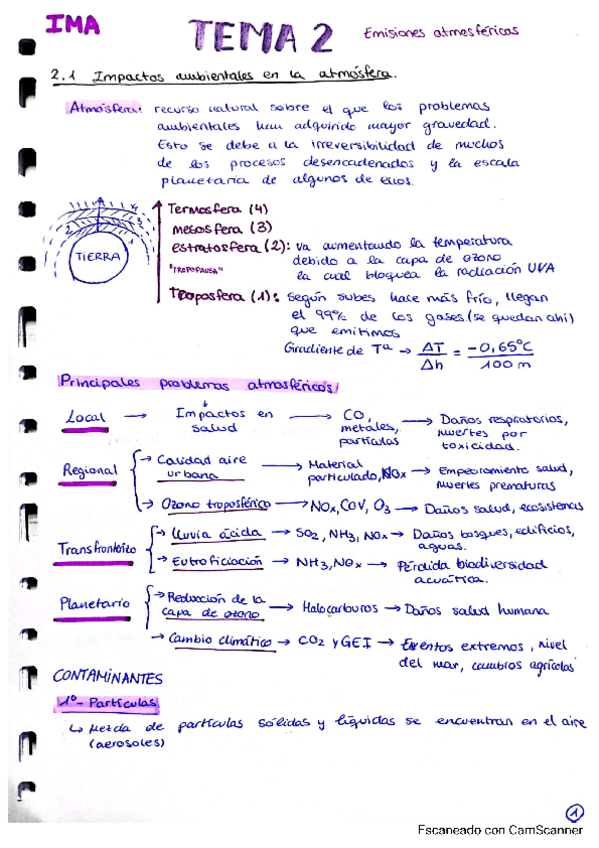 IMA
TEMA 2
Emisiones atmosféricas
2.1 Impactos ambientales en la atmósfera.
Atmósfera: recurso natural sobre el que los problemas
ambientales han adquirido mayor gravedad.
Esto se debe a la irreversibilidad de muchos
de los procesos desencadenados y la escala
planetaria de algunos de ellos.
TIERRA
1
2
3
4
Termosfera (4)
mesosfera (3)
estratosfera (2): va aumentando la temperatura
debido a la capa de ozono
"TROPOPAUSA"
la cual bloquea la radiación UVA
Troposfera (1): según subes hace más frío, llegan
el 99% de los gases (se quedan ahí)
que emitimos
Gradiente de Tª → ΔT/Δh = -0,65°C/100 m
Principales problemas atmosféricos:
Local → Impactos en salud → CO, metales, partículas → Daños respiratorios, muertes por toxicidad.
Regional → Calidad aire urbana → Material particulado, NOx → Empeoramiento salud, muertes prematuras
→ Ozono troposférico → NOx, COV, O3 → Daños salud, ecosistemas
Transfronterizo → Lluvia ácida → SO2, NH3, NOx → Daños bosques, edificios, aguas.
→ Eutroficiación → NH3, NOx → Pérdida biodiversidad acuática.
Planetario → Reducción de la capa de ozono → Halocarburos → Daños salud humana
→ Cambio climático → CO2 y GEI → Eventos extremos, nivel del mar, cambios agrícolas
CONTAMINANTES
1º- Partículas
↳ Mezcla de partículas sólidas y líquidas se encuentran en el aire
(aerosoles)
1
Escaneado con CamScanner